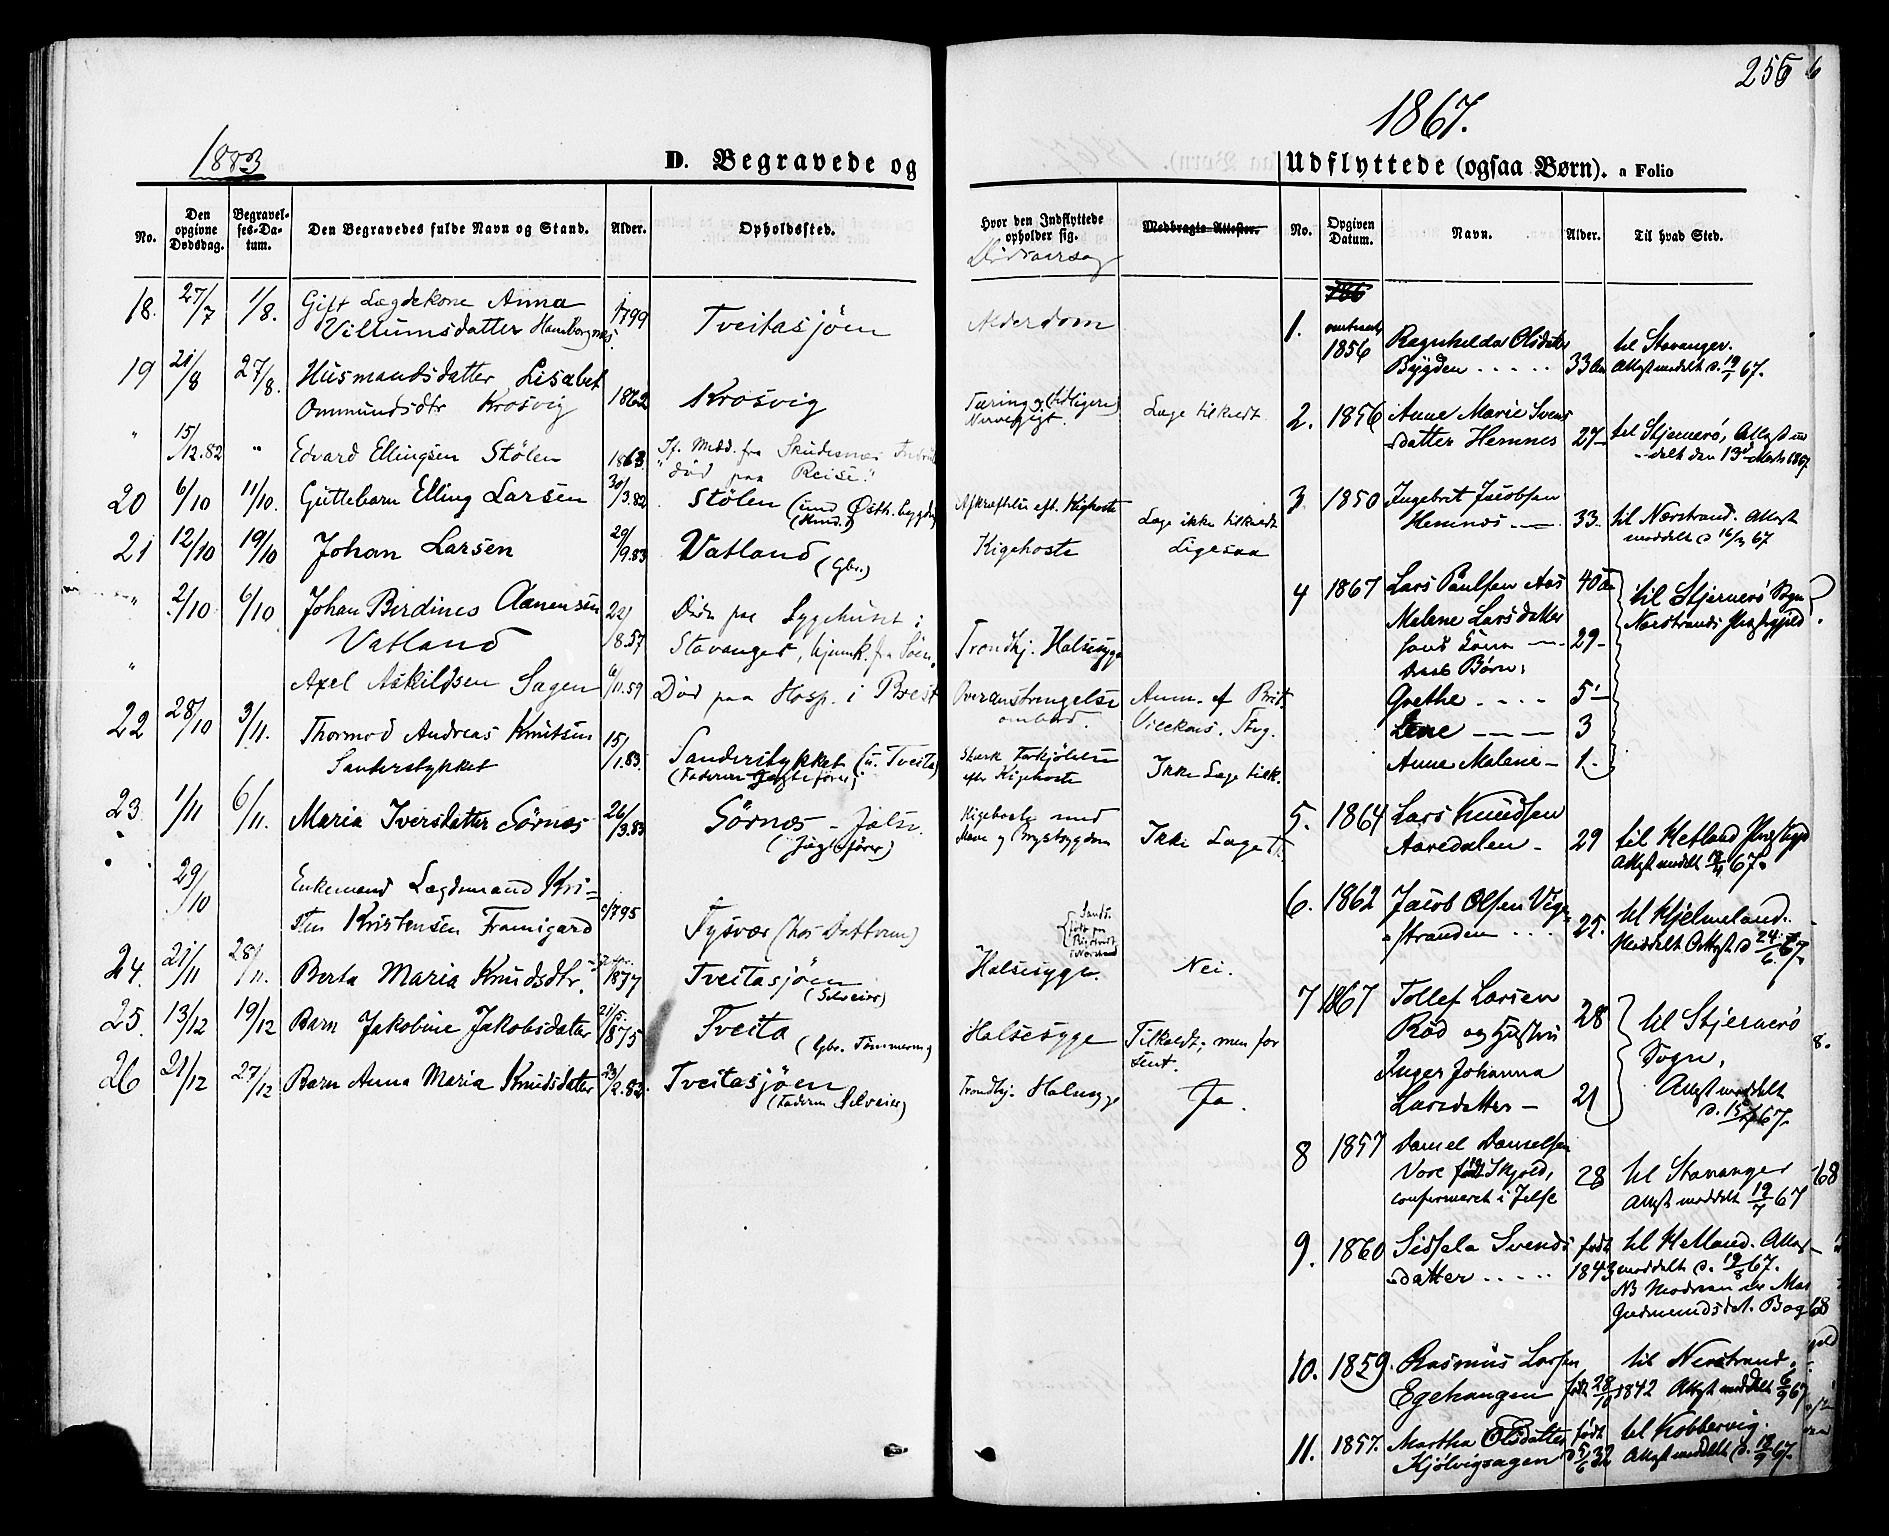 1883
D. Begravede og
No.
Den opgivne Dødsdag.
Begravelses-Datum.
Den Begravedes fulde Navn og Stand.
Alder.
Opholdssted.
Hvor den Indflyttede opholder sig.
Dødsaarsag
Medbragte Attester.
18. 27/7 1/8. Gift Lægdekone Anna 1799 Tveitasjøen Alderdom
Villumsdatter
19 21/8 27/8. Husmandsdatter Lisabet 1862 Krosvig Tæring og (tidligere) Læge tilkaldt
Ommundsdtr Krosvig Nervefigt.
" 15/12.82 " Edvard Ellingsen Stølen 1863 If. Medd. fra Skudesnæs
"død paa Reise".
20 6/10 11/10. Guttebarn Elling Larsen 30/3.82 Stølen Afkræftelse eft. Kighoste Læge ikke tilkaldt
21 12/10 19/10 Johan Larsen 29/9.83 Vatland (Gbr.) Kigehoste Ligesaa
" 2/10 6/10 Johan Berdines Aanensen 22/8.57 Døde paa Sygehuset i
Vatland Stavanger, hjemk. fra Søen. Trondhj. Halsesyge
" Axel Askildsen Sagen 6/11.59 Død paa Hosp. i Brest Overanstrengelse ombord. Anm. af Brit.
22 28/10 3/11. Thormod Andreas Knutsen 15/1.83. Sanderstykket (u. Tveita) Stærk Forkjølelse Ikke Læge tilk.
Sanderstykket efter Kigehoste
23 1/11 6/11. Maria Iversdatter Sørnæs 26/3.83 Sørnæs – Jelse. Kigehoste med Ikke Læge T.
(Jagtefører)
29/10 Enkemand Lægdsmand Kri-
sten Kristensen Framigard 1795 Tysvær (hos Datteren)
24. 21/11 28/11. Berta Maria Knudsdtr. 1877 Tveitasjøen (Selveier) Halsesyge. Nei.
25. 13/12 19/12 Barn Jakobine Jakobsdatter 21/5. 1875 Tveita Halsesyge Tilkaldt, men for
sent.
26 21/12 27/12 Barn Anna Maria Knudsdatter 23/2.82. Tveitasjøen Trondhj. Halsesyge Ja.
(Faderen Selveier)
256
1867.
Udflyttede (ogsaa Børn). a Folio
No.
Opgiven Datum.
Navn.
Alder.
Til hvad Sted.
1. 1856 Ragnhilda Olsdatter til Stavanger.
Bygden . . . . . 33 Attest meddelt d. 67.
2. 1856 Anne Marie Svens
datter Hemnes 27– til Stjernerø, Attest med-
delt den 13de Marts 1867.
3 1850 Ingebret Jacobsen
Hemnæs —— 33. til Nærstrand. Attest
meddelt d 67
4 1867 Lars Paulsen Aas 40 til Stjernerø Sogn
Malene Larsdatter Nærstrands Præstegjeld
hans Kone — 29–
deres Børn:
Grethe . . . . 5–
Lene – – – 3
Anne Malene – 1.
5. 1864 Lars Knudsen
Aaredalen – 29 til Hetland Præstegjeld
Attest meddelt 67.
6. 1862 Jacob Olsen Vige-
stranden . . . 25. til Hjelmeland.
Meddelt Attest d 24/6 67.
7 1867 Tollef Larsen
Rød og Hustru 28 til Stjernerø
Sogn,
Inger Johanna
Larsdatter – 21 Attest meddelt
d. 67.
8 1857 Daniel Danielsen
Vore født i Skjold, 28 til Stavanger
confirmeret i Jelse Attest meddelt 19/7 67
9. 1860 Sissela Svends født til Hetland. Attest
datter . . . . . 1843 meddelt d. 19/8 67.
NB Moderen er
Gudmundsdat.
10. 1859. Rasmus Larsen til Nerstrand.
Egehaugen født 28/10 1842 Attest meddelt 6/9 67
11. 1857. Martha Olsdatter født til Kobbervig.
Kjølvigsagen 5/6 32 Attest meddelt d. 67.